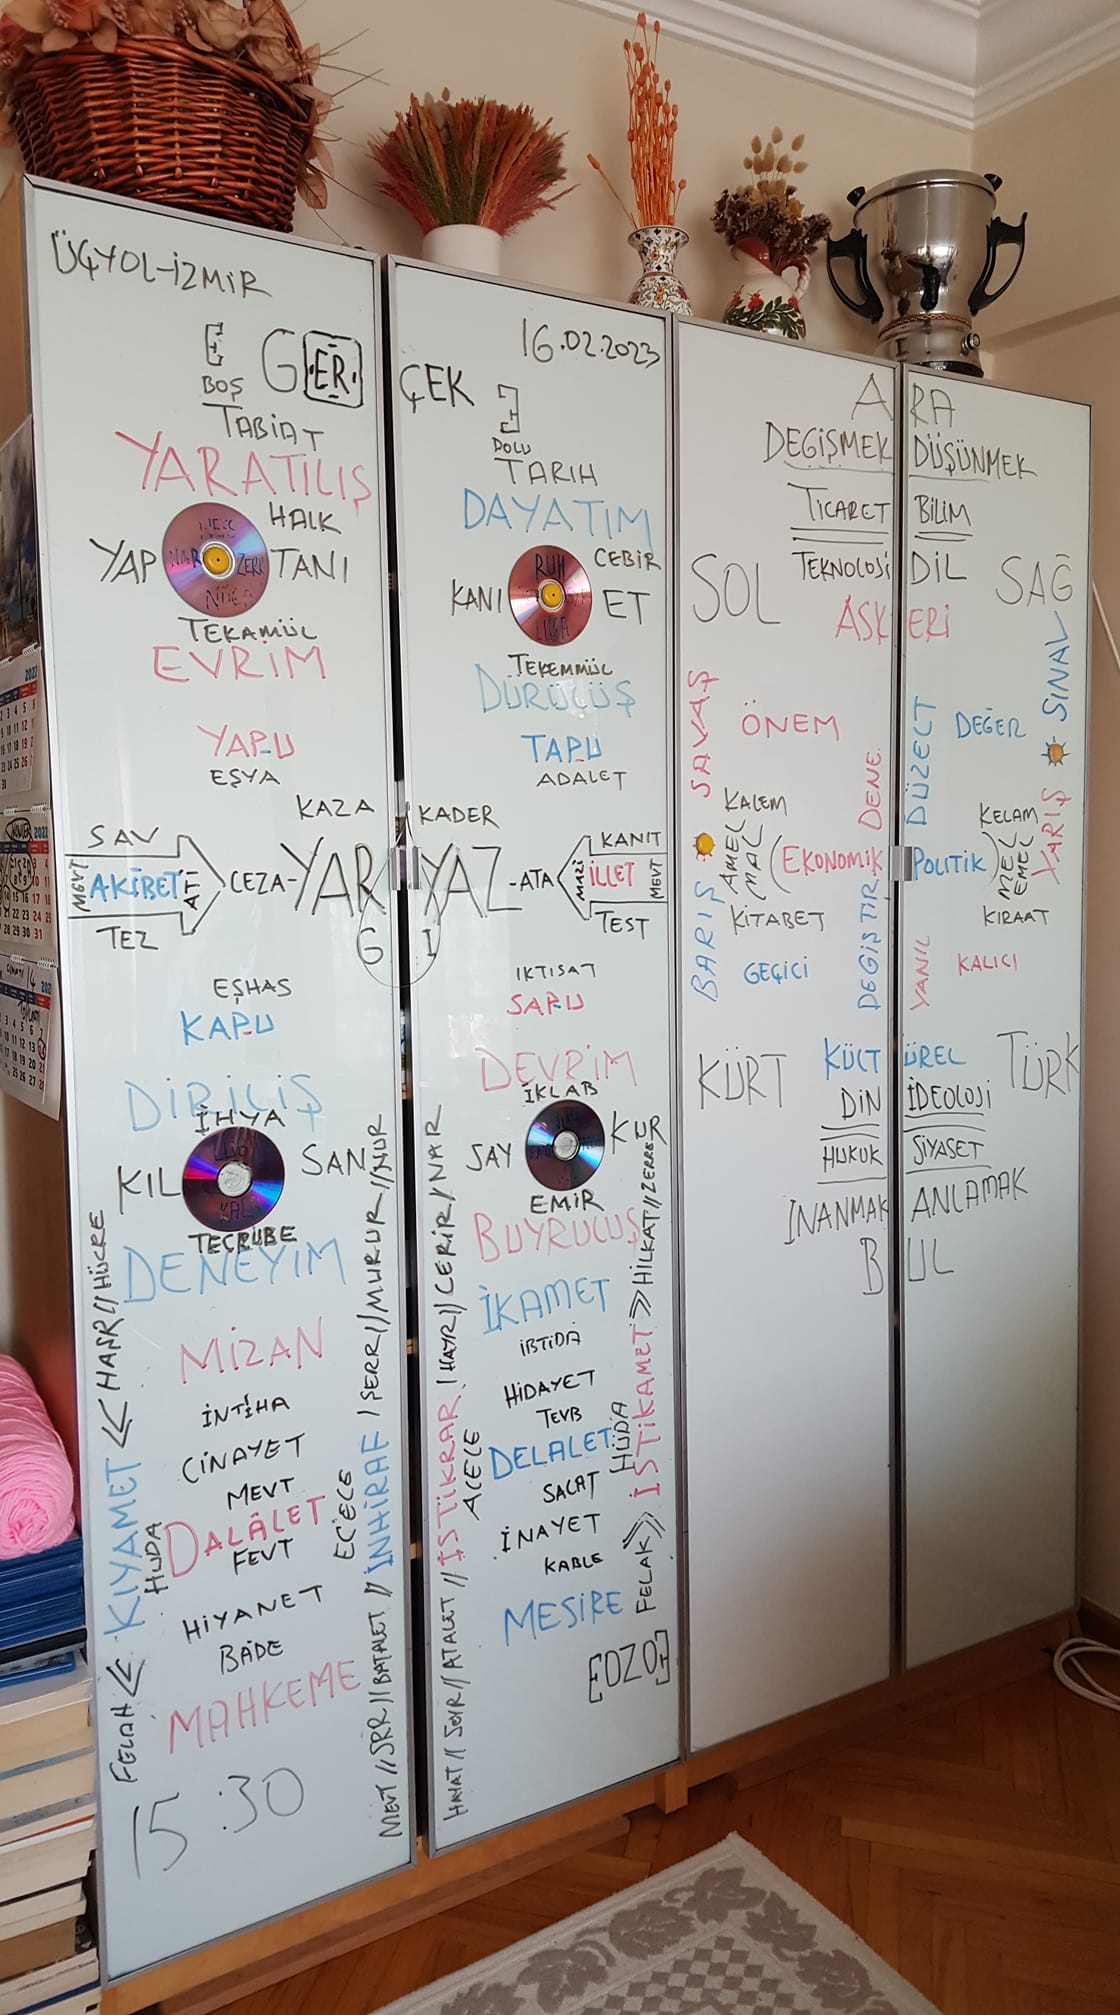 ÜÇYOL-İZMİR
16.02.2023
BOŞ
GER
ÇEK
DOLU
TABİAT
TARİH
YARATILIŞ
DAYATIM
HALK
CEBİR
YAP
TANI
KANI
RUH
ET
TEKAMÜL
TEKEMMÜL
EVRİM
DÜRÜLÜŞ
YAPU
TAPU
EŞYA
ADALET
KAZA
KADER
SAV
KANIT
MEVT
AKİBET
AFF
CEZA-YAR
YAZ-ATA
MAZİ
İLLET
MEVT
TEZ
TEST
G I
EŞHAS
İKTİSAT
KAPU
SAPU
DİRİLİŞ
DEVRİM
İHYA
İKLAB
KIL
SAN
SAY
KUR
TECRÜBE
EMİR
DENEYİM
BUYRULUŞ
MİZAN
İKAMET
İNTİHA
İBTİDA
CİNAYET
HİDAYET
MEVT
TEVB
DALÂLET
DELALET
FEVT
SALAT
HİYANET
İNAYET
BÂDE
KABLE
MAHKEME
MESİRE
[OZO]
15:30
FELAH << KIYAMET << HAŞR // HÜCRE
HUDA
ECELE
MEVT // SIRR // BATALET // İNHİRAF / ŞERR // MURUR // NUR
HAYAT // SEYR // ATALET // İSTİKRAR / HAYR // CERİR / NAR
ACELE
HÜDA
FELAK >> İSTİKAMET >> HİLKAT // ZERRE
ARA
DEĞİŞMEK
DÜŞÜNMEK
TİCARET
BİLİM
TEKNOLOJİ
DİL
SOL
SAĞ
ASKERİ
SAVAŞ
BARIŞ
ÖNEM
DEĞER
DENE
DÜZELT
SINAV
YARIŞ
KALEM
KELAM
AMEL
MAL
(EKONOMİK
POLİTİK)
MEL
EMEL
KİTABET
KIRAAT
DEĞİŞTİR
YANIL
GEÇİCİ
KALICI
KÜRT
KÜLTÜREL
TÜRK
DİN
İDEOLOJİ
HUKUK
SİYASET
İNANMAK
ANLAMAK
BUL